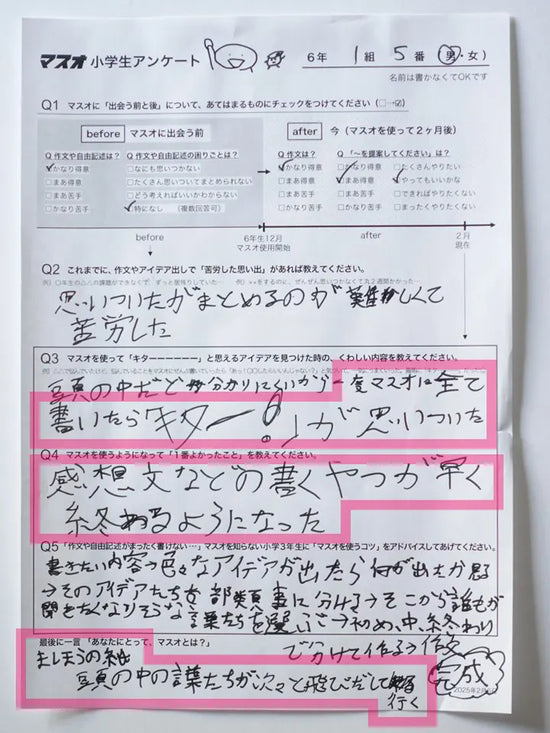 マスオ 小学生アンケート
6年 1組 5番 (男・女)
名前は書かなくてOKです
Q1 マスオに「出会う前と後」について、あてはまるものにチェックをつけてください(□→☑)
before マスオに出会う前
after 今(マスオを使って2ヶ月後)
Q 作文や自由記述は? Q 作文や自由記述の困りごとは?
Q 作文は? Q「〜を提案してください」は?
☑かなり得意 □なにも思いつかない
□まあ得意 □たくさん思いついてまとめられない
□まあ苦手 □どう考えればいいかわからない
□かなり苦手 ☑特になし (複数回答可)
☑かなり得意 ☑かなり得意 □たくさんやりたい
□まあ得意 ☑まあ得意 ☑やってもいいかな
□まあ苦手 □まあ苦手 □できればやりたくない
□かなり苦手 □かなり苦手 □まったくやりたくない
before
6年生12月
マスオ使用開始
after
2月
現在
Q2 これまでに、作文やアイデア出しで「苦労した思い出」があれば教えてください。
思いついたがまとめるのが難しくて
苦労した
Q3 マスオを使って「キターーーーーー」と思えるアイデアを見つけた時の、くわしい内容を教えてください。
頭の中だと分かりにくいから一度マスオに全て
書いたら「キター!」が思いついた
Q4 マスオを使うようになって「1番よかったこと」を教えてください。
感想文などの書くやつが早く
終わるようになった
Q5「作文や自由記述がまったく書けない…」マスオを知らない小学3年生に「マスオを使うコツ」をアドバイスしてあげてください。
書きたい内容→色々なアイデアが出たら何が出たか見る
→そのアイデアたちを部類事に分ける→そこから誰もが
聞きたくなりそうな言葉たちを選ぶ→初め、中、終わり
で分けて作る→
完成
最後に一言「あなたにとって、マスオとは?」
まほうの紙
頭の中の言葉たちが次々と飛びだして
行く